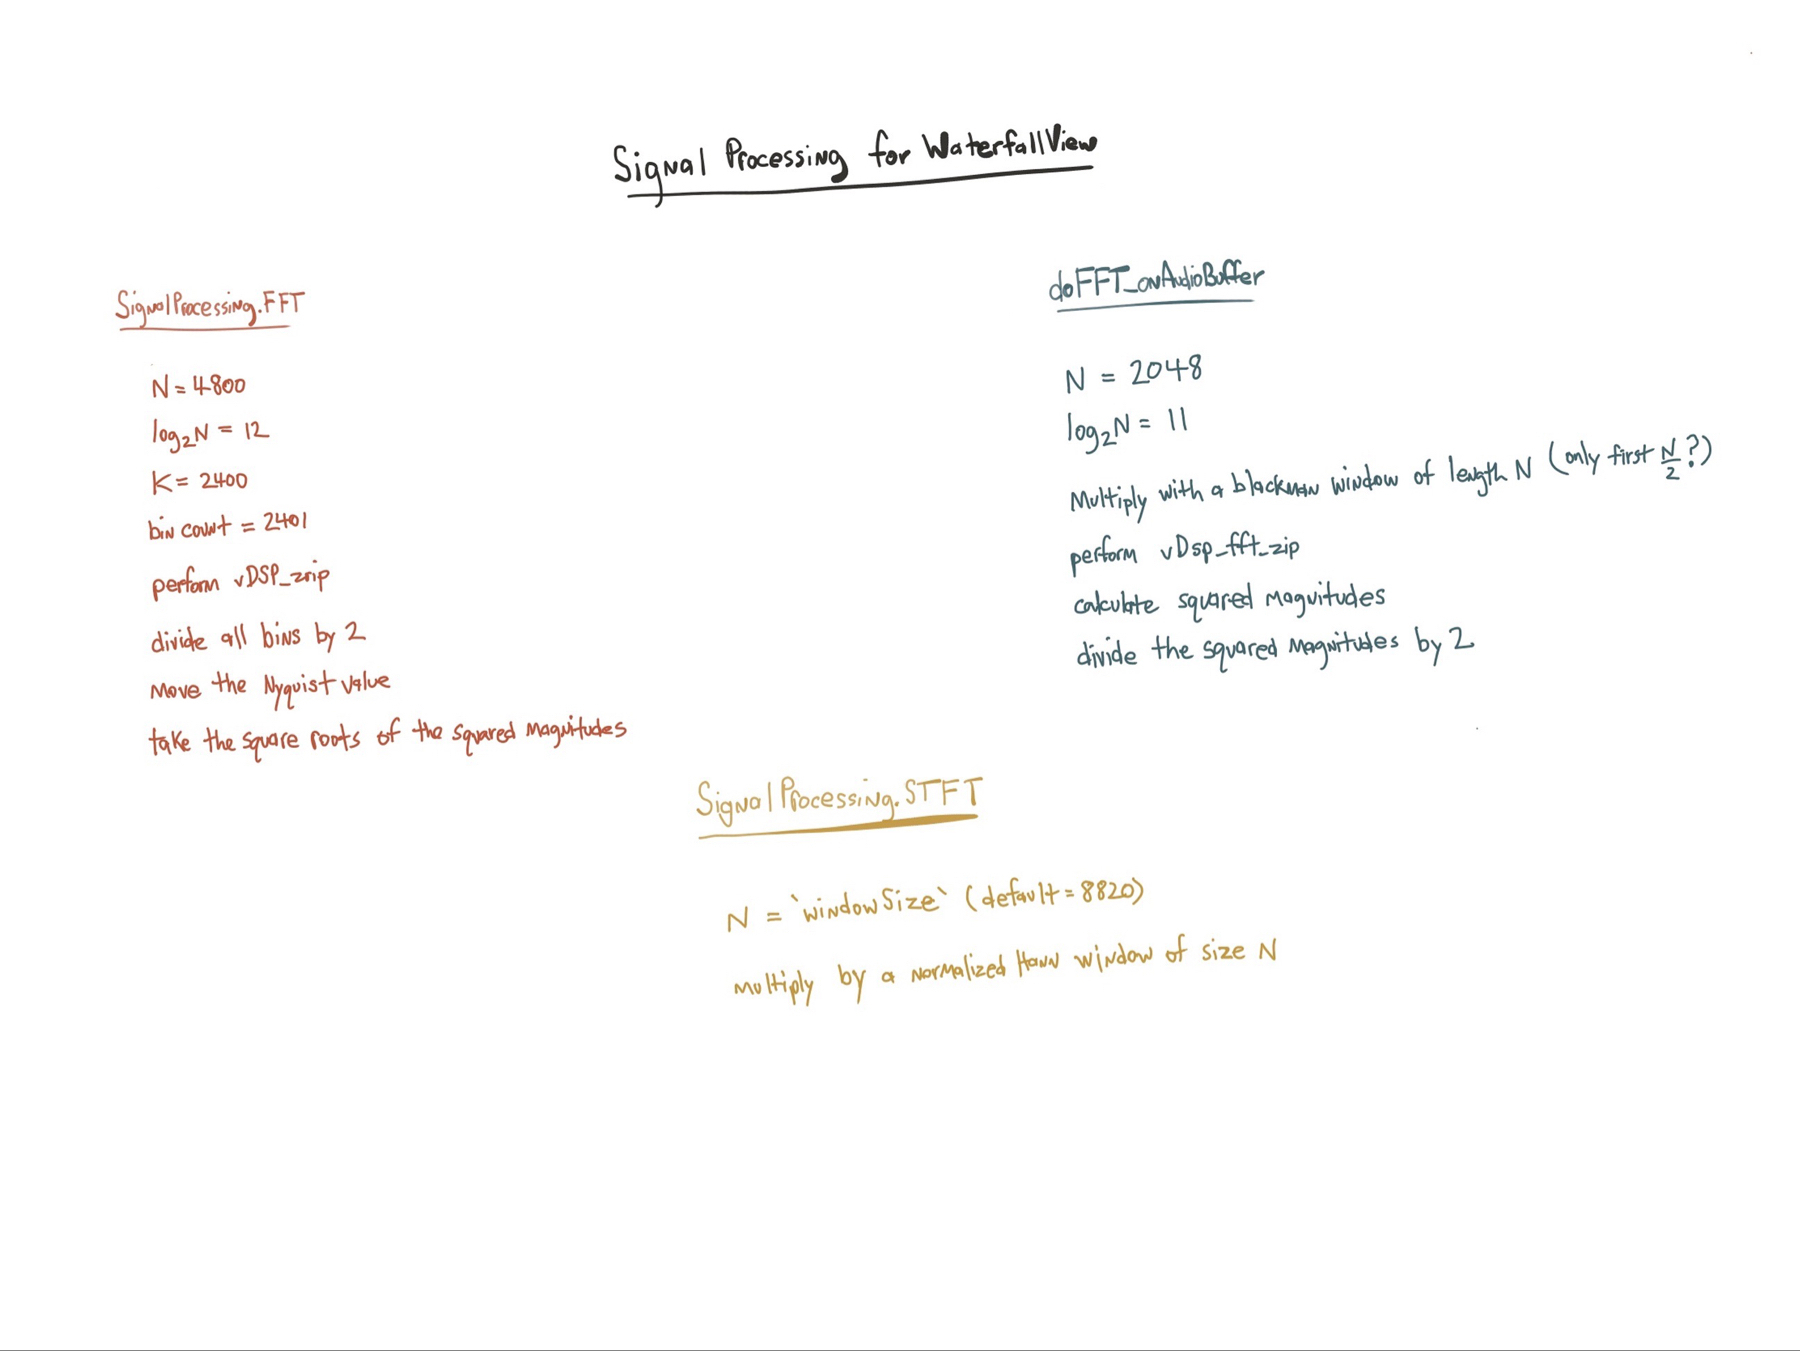 Signal Processing for WaterfallView
SignalProcessing.FFT
N = 4800
log₂N = 12
K = 2400
bin count = 2401
perform vDSP_zrip
divide all bins by 2
Move the Nyquist value
take the square roots of the squared magnitudes
doFFT_onAudioBuffer
N = 2048
log₂N = 11
Multiply with a blackman window of length N (only first N/2?)
perform vDsp_fft_zip
calculate squared magnitudes
divide the squared magnitudes by 2
SignalProcessing.STFT
N = `windowSize` (default = 8820)
multiply by a normalized Hann window of size N